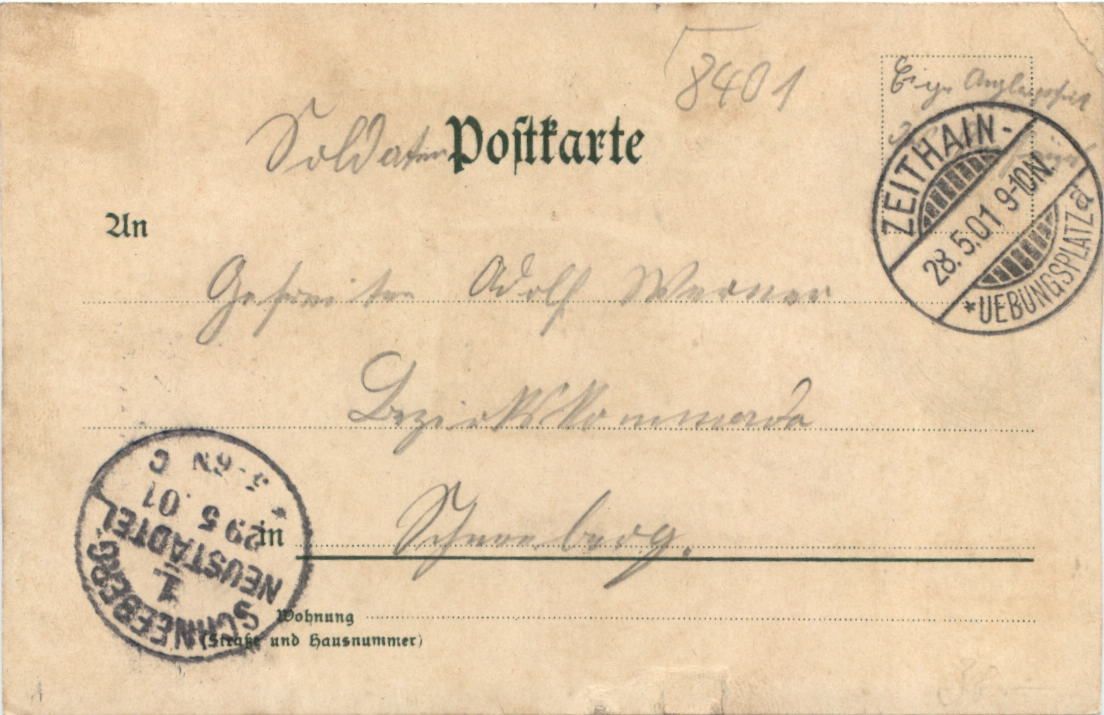 8401
Soldaten Postkarte
Eigen Angelegenheit
An
ZEITHAIN-
28.5.01 9-10N.
*UEBUNGSPLATZ a
Gefreiter Adolf Werner
Bezirkskommado
in Schneeberg.
SCHNEEBERG-
NEUSTÄDTEL
1
29 5 01
* 5-6N C
Wohnung
(Straße und Hausnummer)